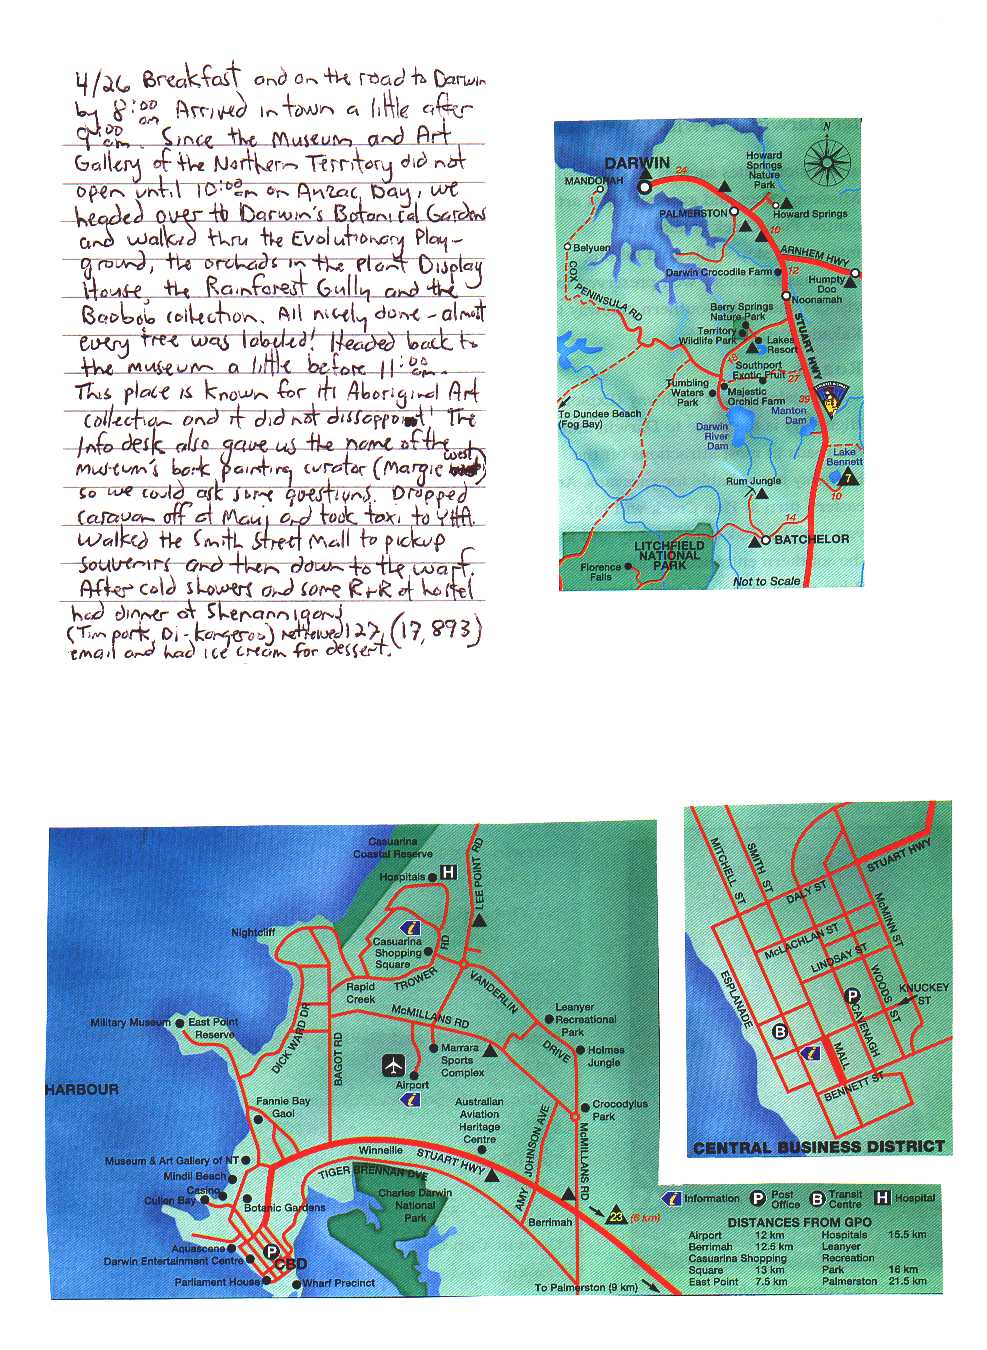 4/26 Breakfast and on the road to Darwin
by 8:00 am Arrived in town a little after
9:00 am. Since the Museum and Art
Gallery of the Northern Territory did not
open until 10:00am on Anzac Day, we
headed over to Darwin's Botanical Gardens
and walked thru the Evolutionary Play-
ground, the orchads in the Plant Display
House, the Rainforest Gully and the
Baobob collection. All nicely done - almost
every tree was labeled! Headed back to
the museum a little before 11:00 am.
This place is known for its Aboriginal Art
collection and it did not dissappoint! The
Info desk also gave us the name of the
museum's bark painting curator (Margie West)
so we could ask some questions. Dropped
caravan off at Maui and took taxi to YHA.
Walked the Smith Street Mall to pickup
souvenirs and then down to the warf.
After cold showers and some R+R at hostel
had dinner at Shenannigans
(Tim pork, Di-kangeroo) retrieved 127, (17,893)
email and had ice cream for dessert.
N
DARWIN
24
Howard
Springs
Nature
Park
MANDORAH
PALMERSTON
Howard Springs
10
Belyuen
ARNHEM HWY
COX
PENINSULA RD
Darwin Crocodile Farm
12
Humpty
Doo
Noonamah
Berry Springs
Nature Park
STUART HWY
Territory
Wildlife Park
Lakes
Resort
Southport
Exotic Fruit
27
Tumbling
Waters
Park
Majestic
Orchid Farm
39
To Dundee Beach
(Fog Bay)
Darwin
River
Dam
Manton
Dam
Lake
Bennett
7
Rum Jungle
10
14
BATCHELOR
LITCHFIELD
NATIONAL
PARK
Florence
Falls
Not to Scale
Casuarina
Coastal Reserve
Hospitals
H
LEE POINT RD
Nightcliff
Casuarina
Shopping
Square
RD
TROWER
Rapid
Creek
VANDERLIN
DRIVE
McMILLANS RD
Leanyer
Recreational
Park
Military Museum
East Point
Reserve
DICK WARD DR
BAGOT RD
Marrara
Sports
Complex
Holmes
Jungle
HARBOUR
Airport
Fannie Bay
Gaol
Australian
Aviation
Heritage
Centre
Crocodylus
Park
AMY JOHNSON AVE
McMILLANS RD
Museum & Art Gallery of NT
Winnellie
STUART HWY
TIGER BRENNAN DVE
Mindil Beach
Casino
Cullen Bay
Botanic Gardens
Charles Darwin
National
Park
Berrimah
23
(6 km)
Aquascene
P
Darwin Entertainment Centre
CBD
Parliament House
Wharf Precinct
To Palmerston (9 km)
MITCHELL ST
SMITH ST
STUART HWY
DALY ST
McMINN ST
McLACHLAN ST
LINDSAY ST
ESPLANADE
WOODS ST
KNUCKEY
ST
P
CAVENAGH
B
MALL
BENNETT ST
CENTRAL BUSINESS DISTRICT
i Information P Post Office B Transit Centre H Hospital
DISTANCES FROM GPO
Airport 12 km Hospitals 15.5 km
Berrimah 12.5 km Leanyer
Casuarina Shopping Recreation
Square 13 km Park 16 km
East Point 7.5 km Palmerston 21.5 km